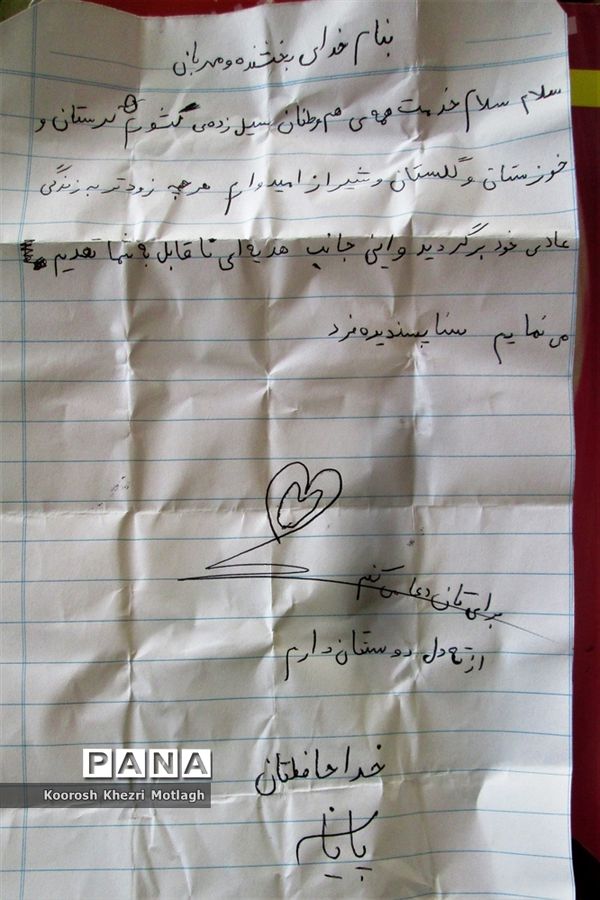 بنام خدای بخشنده و مهربان
سلام سلام خدمت همه ی هم وطنان سیل زده ی کشورم لرستان و
خوزستان و گلستان و شیراز امیدوارم هر چه زودتر به زندگی
عادی خود برگردید و این جانب هدیه ای نا قابل به شما تقدیم
می نمایم سنا پسندیده فرد
برای تان دعا می کنم
از ته دل دوستان دارم
خدا حافظتان
پایان
PANA
Koorosh Khezri Motlagh